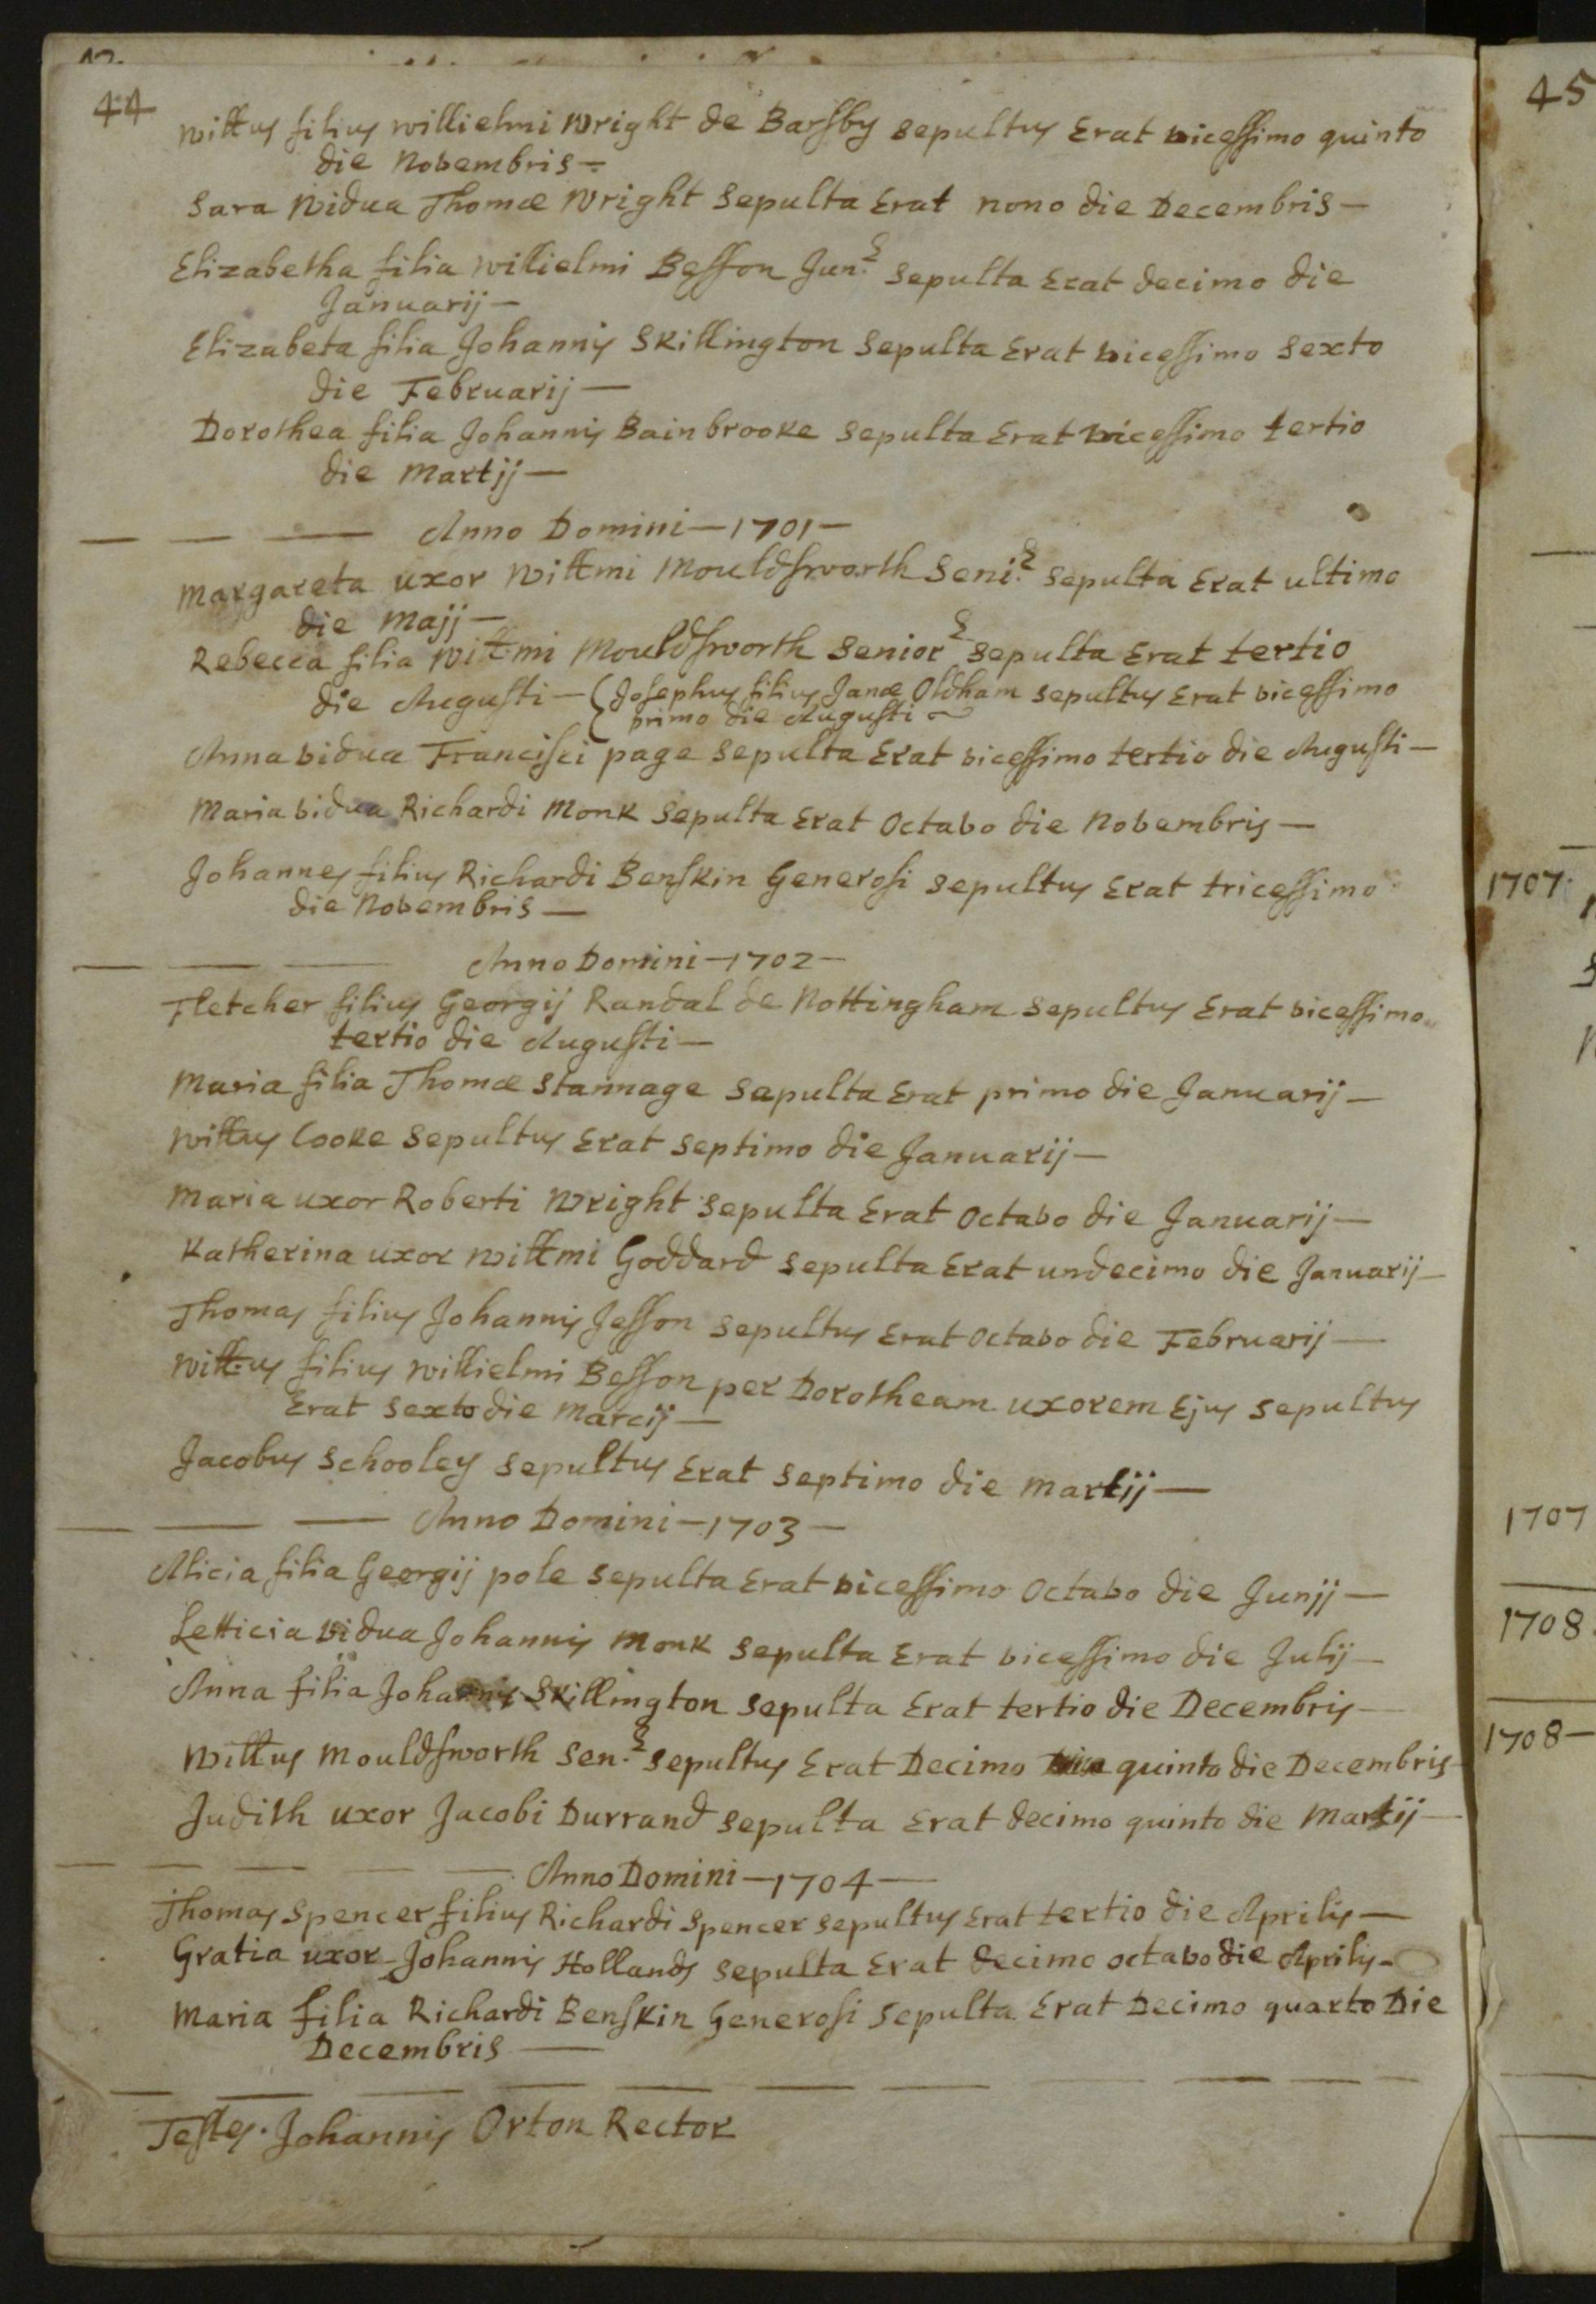 44
Willus filius Willielmi Wright de Barsby sepultus Erat vicessimo quinto
die Novembris —
Sara Vidua Thomæ Wright Sepulta Erat nono die Decembris —
Elizabetha filia Willielmi Besson Junr. Sepulta Erat decimo die
Januarij —
Elizabeta filia Johannis Skillington Sepulta Erat vicessimo Sexto
die Februarij —
Dorothea filia Johannis Bainbrooke Sepulta Erat vicessimo tertio
die Martij —
— — — Anno Domini — 1701 —
Margareta uxor Willmi Mouldsworth Senir. Sepulta Erat ultimo
die Majj —
Rebecca filia Willmi Mouldsworth Senior Sepulta Erat tertio
die Augusti — { Josephus filius Janæ Oldham Sepultus Erat vicessimo
primo die Augusti
Anna vidua Francisci page Sepulta Erat vicessimo tertio die Augusti —
Maria vidua Richardi Monk Sepulta Erat Octavo die Novembris —
Johannes filius Richardi Benskin Generosi Sepultus Erat tricessimo
die Novembris —
— — — Anno Domini — 1702 —
Fletcher filius Georgij Randal de Nottingham Sepultus Erat vicessimo
tertio die Augusti —
Maria filia Thomæ Stannage Sepulta Erat primo die Januarij —
Willus Cooke Sepultus Erat Septimo die Januarij —
Maria uxor Roberti Wright Sepulta Erat Octavo die Januarij —
Katherina uxor Willmi Goddard Sepulta Erat undecimo die Januarij —
Thomas filius Johannis Jesson Sepultus Erat Octavo die Februarij —
Willus filius Willielmi Besson per Dorotheam uxorem Ejus Sepultus
Erat Sexto die Marcij —
Jacobus Schooley Sepultus Erat Septimo die Martij —
— — — Anno Domini — 1703 —
Alicia filia Georgij pole Sepulta Erat vicessimo Octavo die Junjj —
Letticia vidua Johannis Monk Sepulta Erat vicessimo die Julij —
Anna filia Johannis Skillington Sepulta Erat tertio die Decembris —
Willus Mouldsworth Senr. Sepultus Erat Decimo quinto die Decembris —
Judith uxor Jacobi Durrand Sepulta Erat decimo quinto die Martij —
— — — — Anno Domini — 1704 —
Thomas Spencer filius Richardi Spencer Sepultus Erat tertio die Aprilis —
Gratia uxor Johannis Hollands Sepulta Erat decimo octavo die Aprilis —
Maria filia Richardi Benskin Generosi Sepulta Erat Decimo quarto Die
Decembris —
Testes. Johannis Orton Rector
45
1707
1707
1708
1708 —